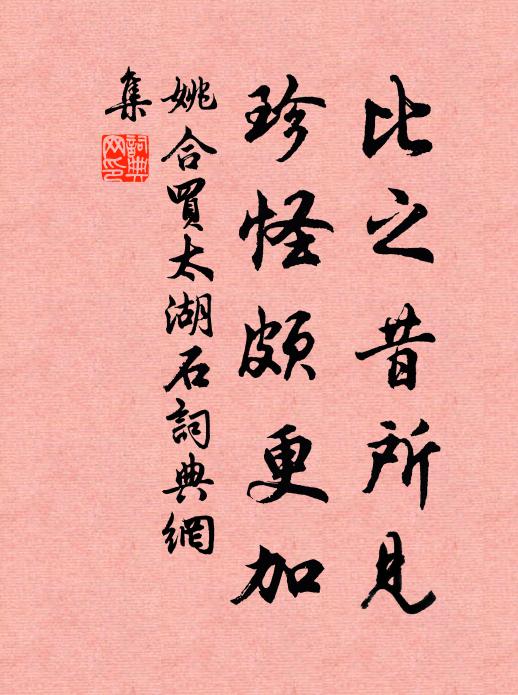 比之昔所見
珍怪頗更加
姚合買太湖石詞典網
集
詞典網印